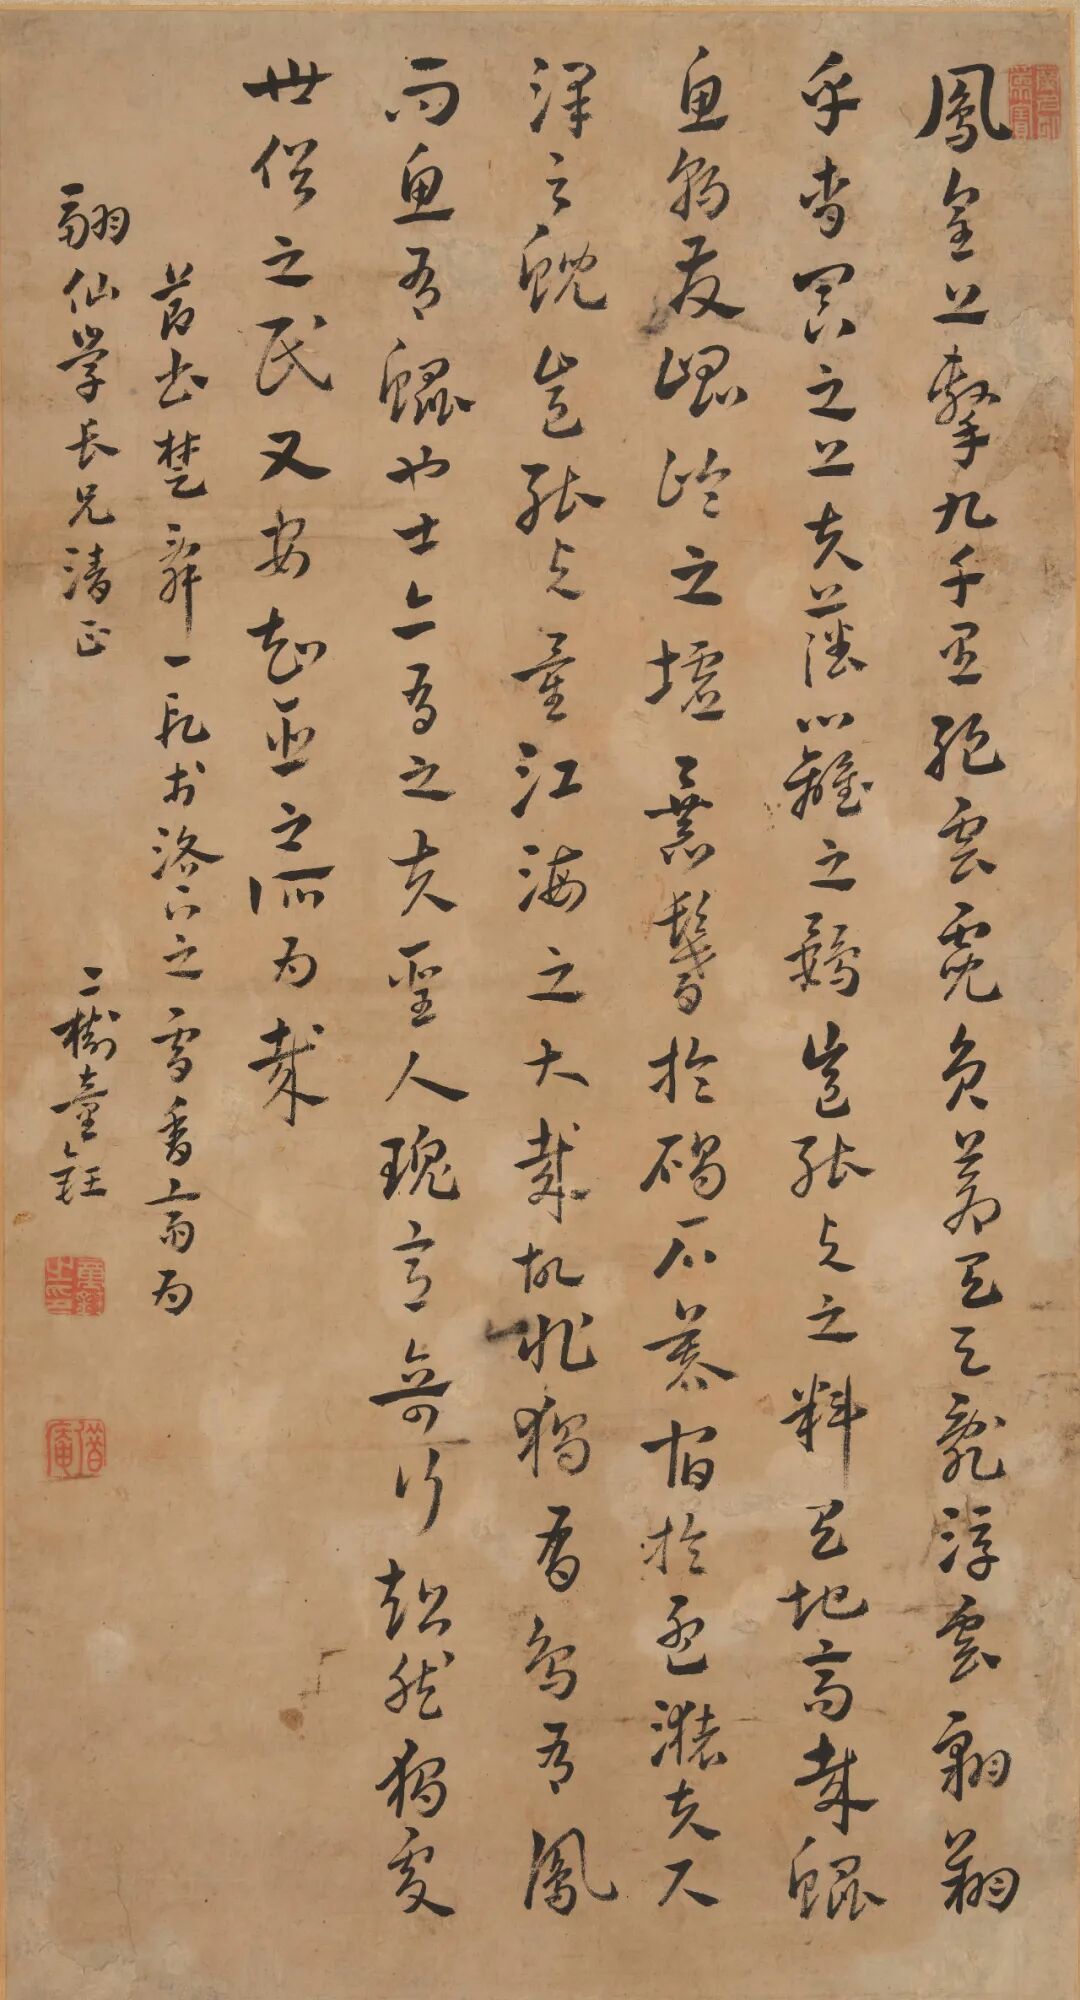 鳳皇上擊九千里絕雲霓負蒼天足亂浮雲翱翔
乎杳冥之上夫藩籬之鷃豈能與之料天地高哉鯤
魚朝發崑崙之墟暴鬐於碣石暮宿於孟諸夫尺
澤之鯢豈能與量江海之大哉故非獨鳥有鳳
而魚有鯤也士亦有之夫聖人瑰意奇行超然獨處
世俗之民又安知臣之所為哉
節書楚辭一段於洛下之雪香齋為
翮仙學長兄清正
二樹童鈺
童鈺之印
借庵